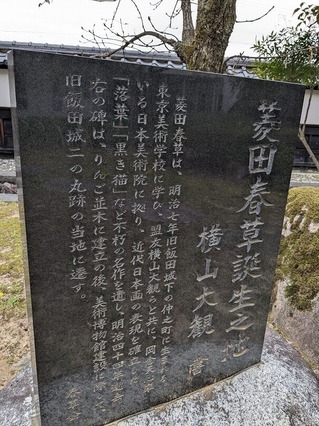 菱田春草誕生之地
横山大観 書
菱田春草は、明治七年旧飯田城下の仲之町に生まれ、
東京美術学校に学び、盟友横山大観らと共に、岡倉天
いる日本美術院に拠り、近代日本画の表現を確立
「落葉」「黒き猫」など不朽の名作を遺し、明治四十四年
右の碑は、りんご並木に建立の後、美術博物館建設に
旧飯田城二の丸跡の当地に遷す。